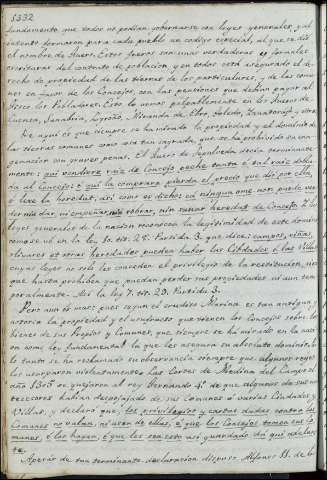 5332
fundamento que todos no podían gobernarse con leyes generales, y al
intento formaron para cada pueblo un codigo especial, al que se dió
el nombre de Fuero. Estos fueros son unas verdaderas formales
escrituras del contrato de poblacion, y en todos está asegurado el de-
recho de propiedad de las tierras de los particulares, y de las comu-
nes en favor de los Concejos, con las pensiones que debian pagar al
Fisco los Pobladores. Esto lo vemos palpablemente en los Fueros de
Cuenca, Sanabria, Logroño, Miranda de Ebro, Toledo, y otros
De aquí es que siempre se ha mirado la propiedad y el dominio de
las tierras comunes como cosa tan sagrada, que se ha prohibido su ena-
genacion con graves penas. El Fuero de Sepulveda decia terminante
mente: qui vendiere raiz de Concejo peche tanta é tal raiz dobla-
da al Concejo: é qui la comprare pierda el precio que dió por ella,
é lexe la heredat, asi como es dicho: ca ninguno ome non puede ven-
der nin dar, ni empeñar, nin robrar, nin sanar heredat de Concejo. Y las
leyes generales de la nacion reconocen la legitimidad de este dominio
como se vé en la ley 10. tit. 28. Partida 3. que dice: campos, viñas,
olivares et otras heredades pueden haber las Cibdades é las Villas
cuyas leyes no solo les conceden el privilegio de la restitucion, sino
que hasta prohiben que puedan perder sus propiedades ni aun tem-
poralmente. Asi la ley 7. tit. 29. Partida 3.
Pero aun es mas; pues segun el erudito Marina es tan antigua y
notoria la propiedad y el señorio que tienen los Concejos sobre los
bienes de sus Propios y Comunes, que siempre se ha mirado en la naci-
on como ley fundamental la que les asegura su absoluto dominio, y por
lo tanto se ha reclamado su observancia siempre que algunos reyes
los usurparon violentamente. Las Cortes de Medina del Campo del
año 1305 se quejaron al rey Fernando 4.º de que algunos de sus an-
tecesores habían despojado de sus Comunes á varias Ciudades y
Villas, y declaró que, los privilegios y cartas dadas contra los
Comunes no valan, ni usen de ellas, é que los Concejos tomen sus co-
munes, é los hayan, é que les sea esto asi guardado de aqui adelan-
te.
Apesar de tan terminante declaracion dispuso Alfonso 11. de lo